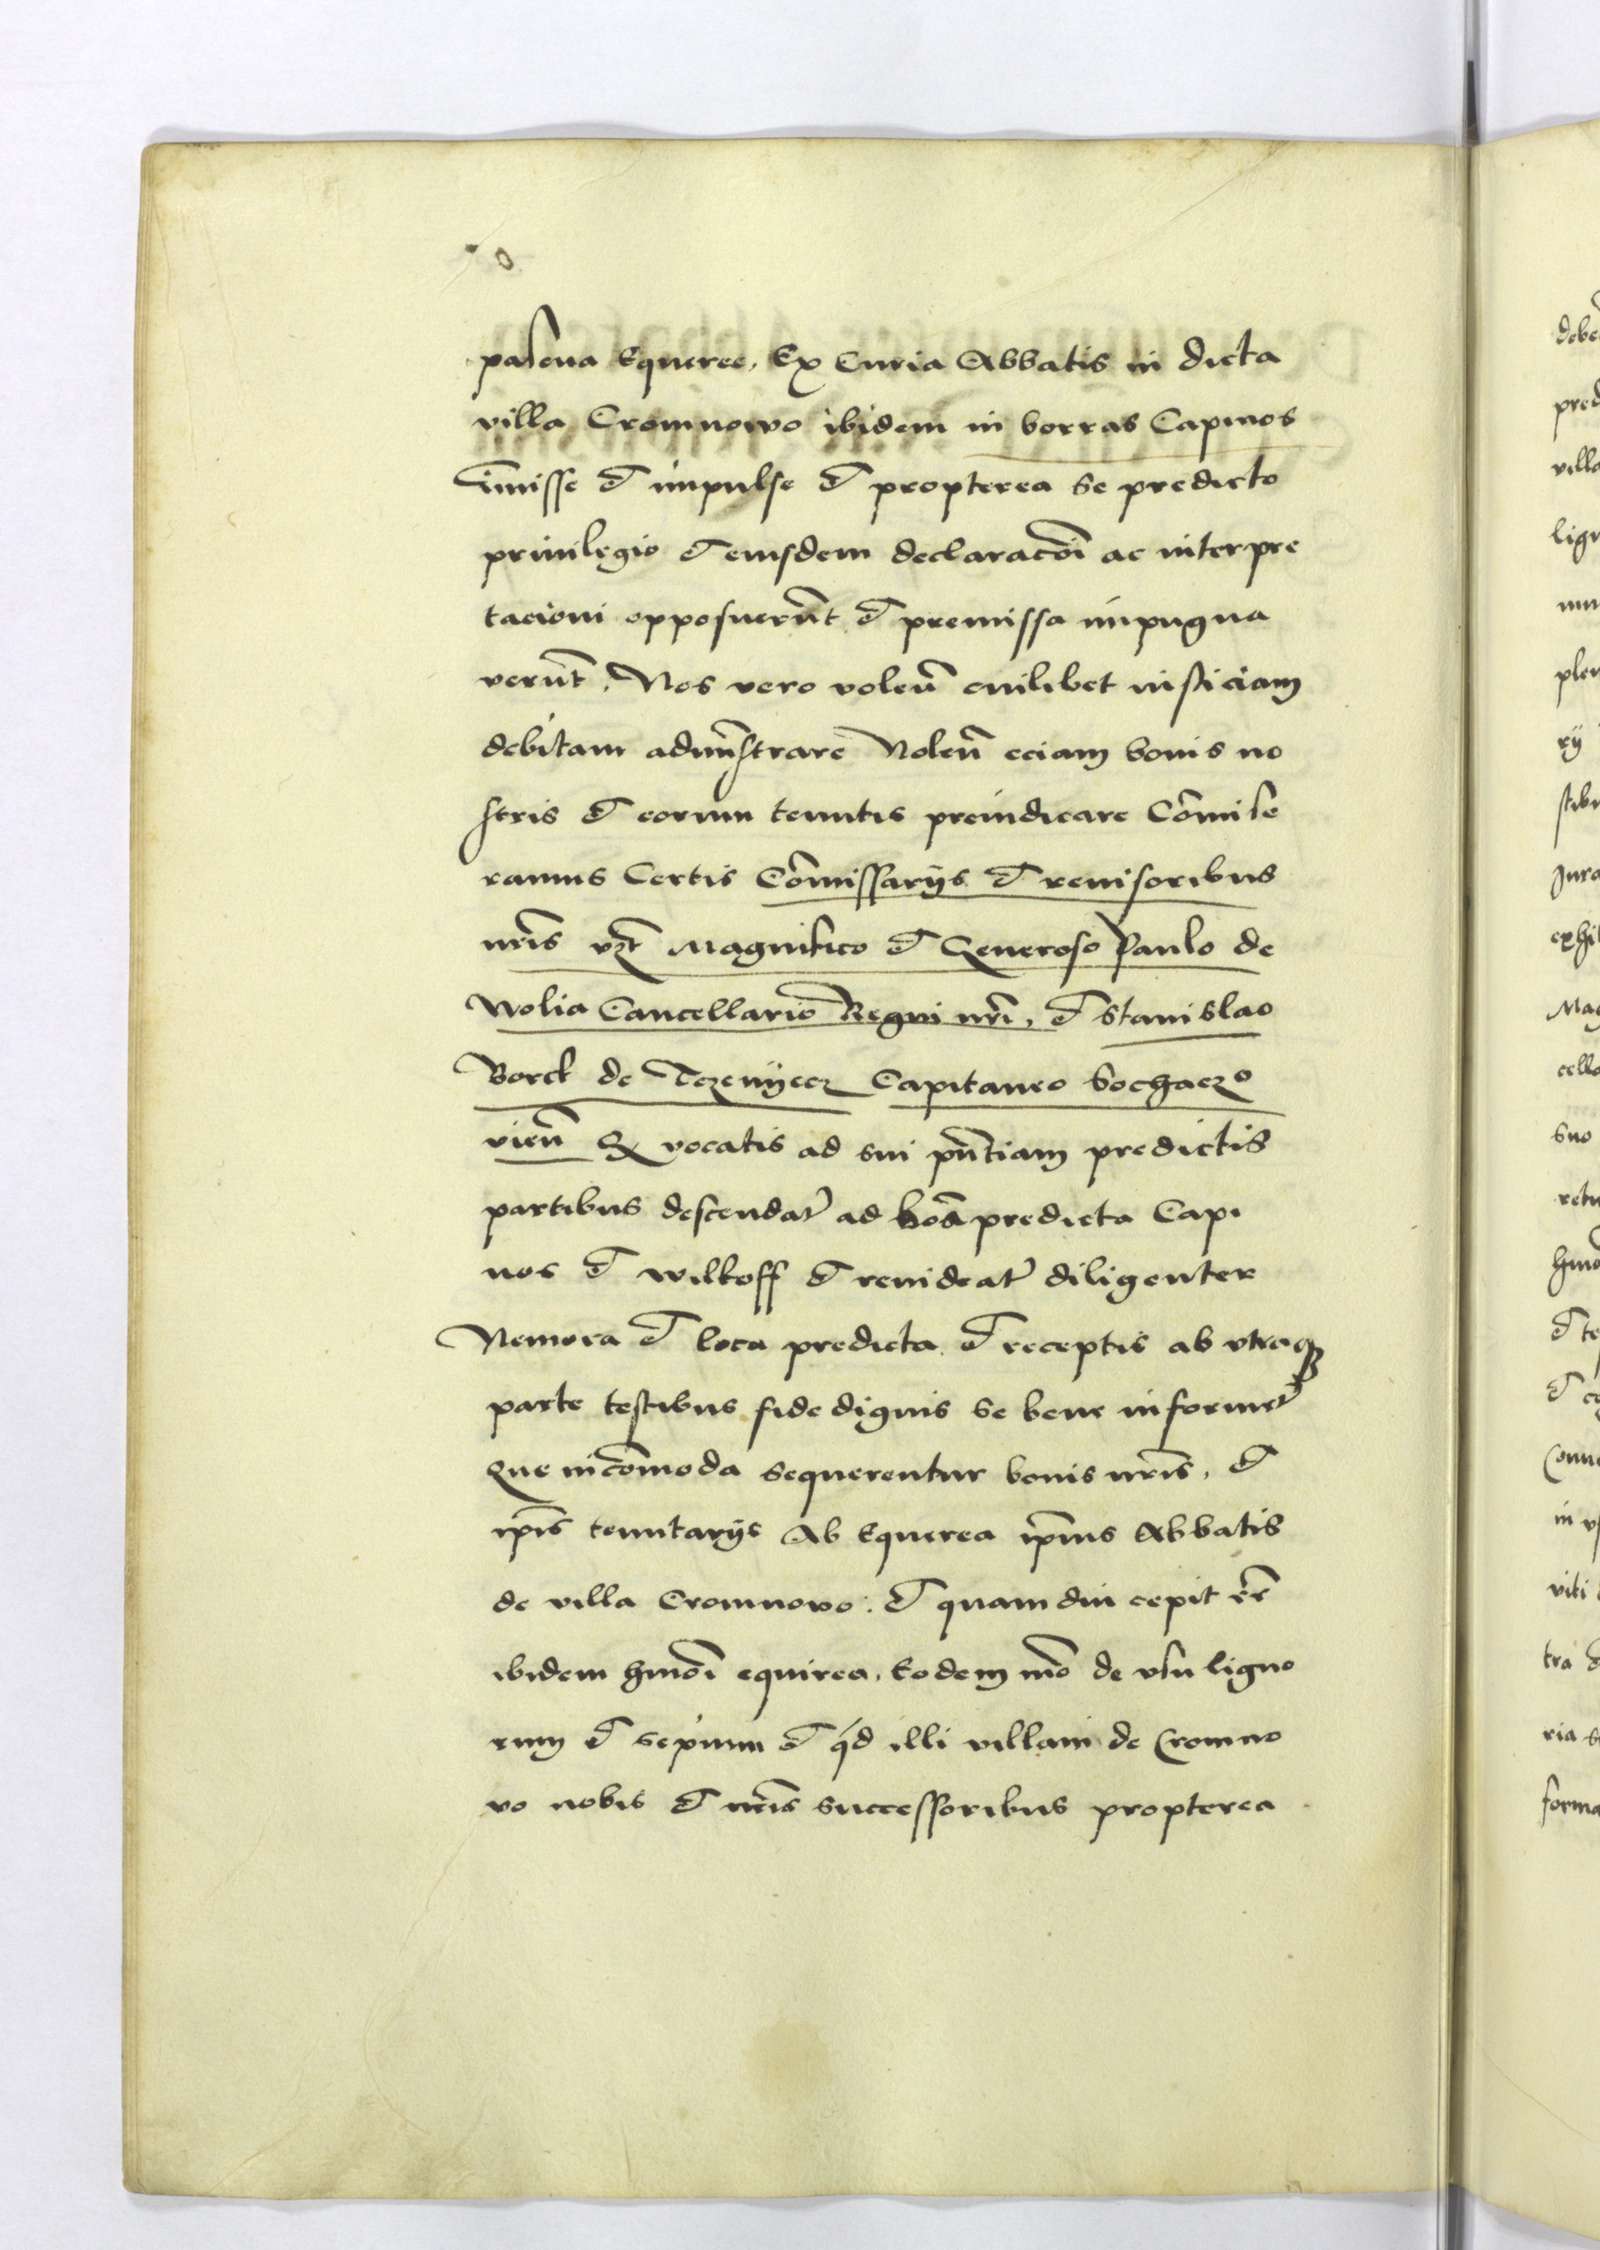 pascua Equeree, Ex Curia Abbatis in dicta
villa Cromnowo ibidem in borras Capinos
im̄isse et impulse et propterea se predicto
priuilegio et eiusdem declaracōi ac interpre
tacioni opposuerūt et premissa impugna
verūt, Nos vero volen̄ cuilibet iusticiam
debitam admīstrare Nolen̄ eciam bonis no
stris et eorum tenutis preiudicare Cōmise
ramus Certis Cōmissarijs et reuisoribus
nr̄is vzt̄ Magnifico et Generoso Paulo de
Wolia Cancellario Regni nr̄i, et Stanislao
Borck de Tczemyecz Capitaneo Sochaczo
vien̄ Qz vocatis ad sui pn̄tiam predictis
partibus descendat̄ ad boā predicta Capi
nos et Wilkoff et reuideat̄ diligenter
Nemora et loca predicta et receptis ab vtraqȝ
parte testibus fide dignis se bene informet̄
Que incōmoda sequerentur bonis nr̄is, et
ip̄is tenutarijs Ab Equerea ip̄ius Abbatis
de villa Cromnowo: et quam diu cepit ēē
ibidem hmōi equirea, Eodem mō de vsu ligno
rum et sepium et qd illi villani de Cromno
vo nobis et nr̄is successoribus propterea